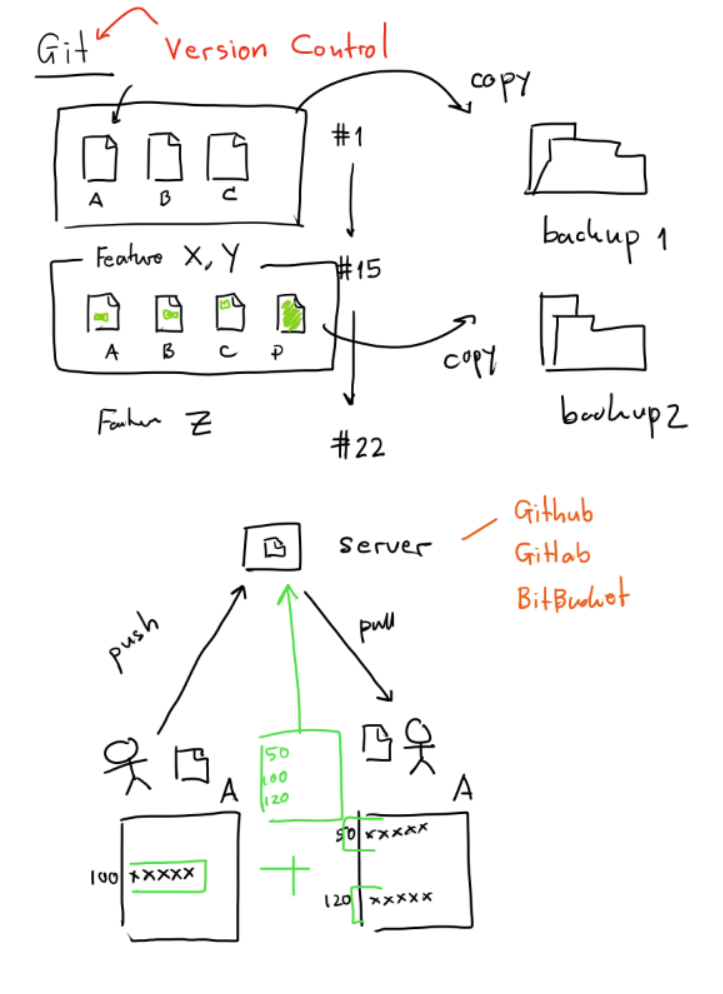 Git
Version Control
copy
#1
A B C
backup 1
Feature X, Y
#15
A B C D
copy
backup 2
Z
#22
server
Github
Gitlab
BitBucket
push
pull
50
100
120
A
A
50 xxxxx
100 xxxxx
+
120 xxxxx